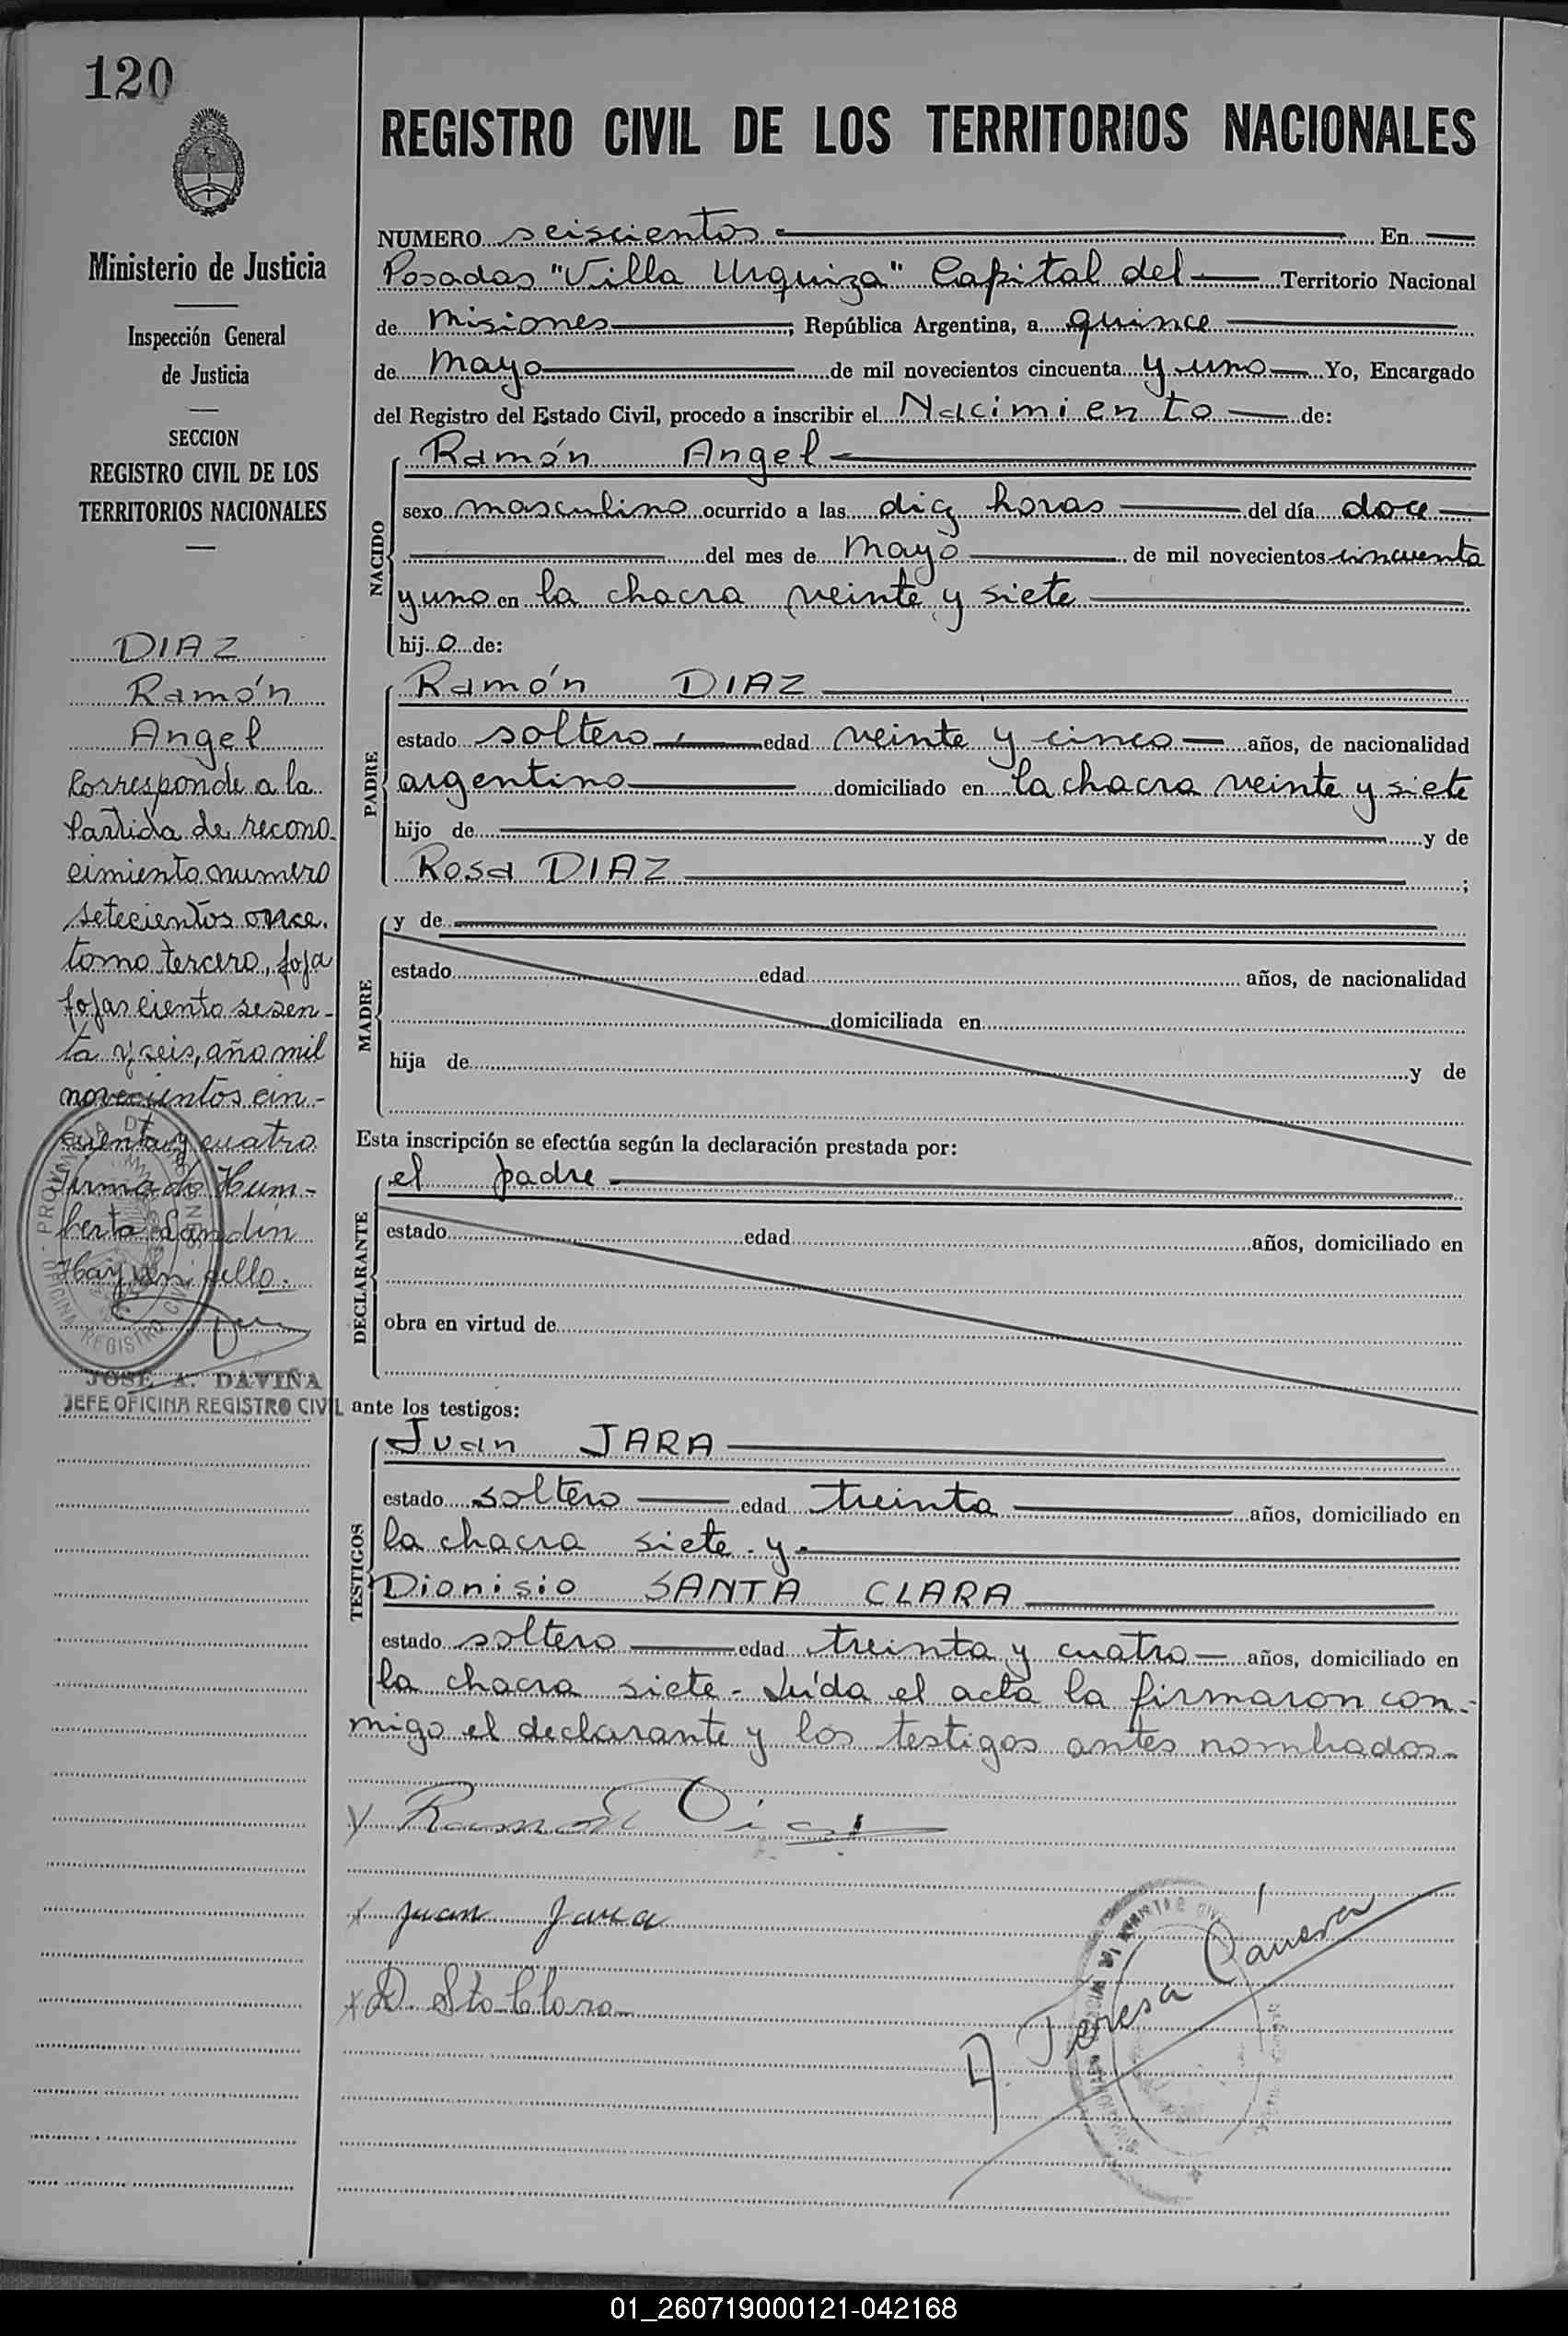 120
REGISTRO CIVIL DE LOS TERRITORIOS NACIONALES
Ministerio de Justicia
Inspección General
de Justicia
SECCION
REGISTRO CIVIL DE LOS
TERRITORIOS NACIONALES
DIAZ
Ramón
Angel
Corresponde a la
Partida de recono-
cimiento numero
setecientos once,
tomo tercero, foja
fojas ciento sesen-
ta y seis, año mil
novecientos cin-
cuenta y cuatro
Firmado Hum-
berto
Hay un sello.
JOSE A. DAVIÑA
JEFE OFICINA REGISTRO CIVIL
NUMERO seiscientos En
Posadas "Villa Urquiza" Capital del Territorio Nacional
de Misiones; República Argentina, a quince
de Mayo de mil novecientos cincuenta y uno Yo, Encargado
del Registro del Estado Civil, procedo a inscribir el Nacimiento de:
NACIDO
Ramón Angel
sexo masculino ocurrido a las diez horas del día doce
del mes de Mayo de mil novecientos cincuenta
y uno en la chacra veinte y siete
hijo de:
PADRE
Ramón DIAZ
estado soltero edad veinte y cinco años, de nacionalidad
argentino domiciliado en la chacra veinte y siete
hijo de y de
Rosa DIAZ;
MADRE
y de
estado edad años, de nacionalidad
domiciliada en
hija de y de
Esta inscripción se efectúa según la declaración prestada por:
DECLARANTE
el padre
estado edad años, domiciliado en
obra en virtud de
ante los testigos:
TESTIGOS
Juan JARA
estado soltero edad treinta años, domiciliado en
la chacra siete y
Dionisio SANTA CLARA
estado soltero edad treinta y cuatro años, domiciliado en
la chacra siete - Leída el acta la firmaron con-
migo el declarante y los testigos antes nombrados
Ramon Dias
Juan Jara
D. Sta Clara
A. Teresa
01_260719000121-042168